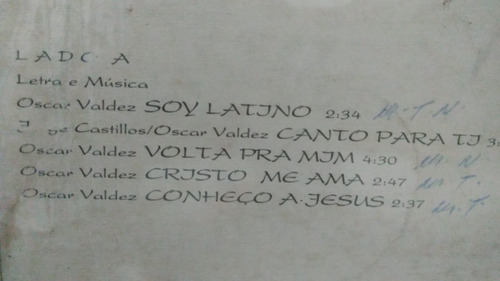 LADO A
Letra e Música
Oscar Valdez SOY LATINO 2:34 M.T.N.
Castillos/Oscar Valdez CANTO PARA TI 3:
Oscar Valdez VOLTA PRA MIM 4:30 M.N.
Oscar Valdez CRISTO ME AMA 2:47 M.T.
Oscar Valdez CONHEÇO A JESUS 2:37 M.T.